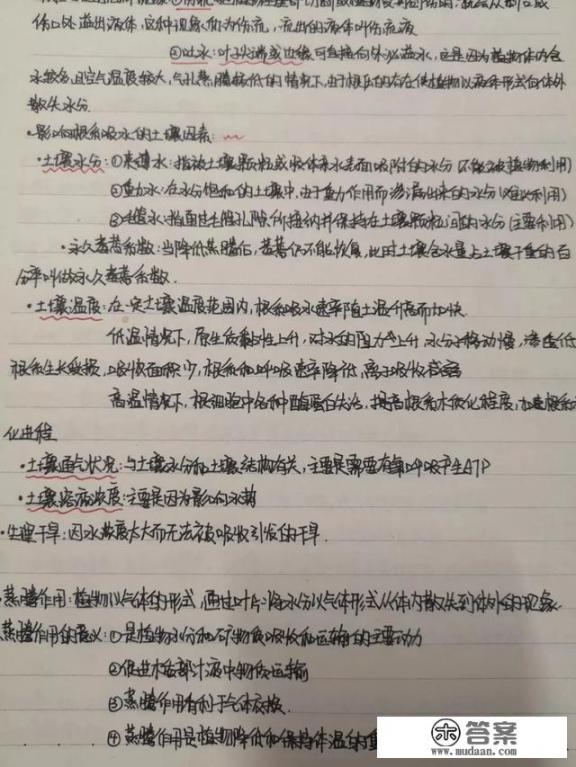 伤口处溢出液体,这种现象称为伤流,流出的液体叫伤流液
②吐水:叶子尖端或边缘可直接向外泌溢水,这是因为植物体内含
水较多,且空气湿度较大,气孔蒸腾较低的情况下,由于根压的存在使植物以液体形式向体外
散失水分
·影响根系吸水的土壤因素:
·土壤水分:①束缚水:指被土壤颗粒或胶体亲水表面吸附的水分(不能被植物利用)
②重力水:在水分饱和的土壤中,由于重力作用而渗漏出来的水分(难以利用)
③毛管水:指通过毛细孔隙所接纳并保持在土壤颗粒间的水分(主要利用)
·永久萎蔫系数:当降低蒸腾后,萎蔫仍不能恢复,此时土壤含水量占土壤干重的百
分率叫做永久萎蔫系数.
·土壤温度:在一定土壤温度范围内,根系吸水速率随土温升高而加快.
低温情况下,原生质黏性上升,对水的阻力上升,水分子移动慢,渗透低
根系生长受损,吸收面积少,根系和呼吸速率降低,离子吸收
高温情况下,根细胞中各种酶蛋白失活,提高根系木质化程度,加速根系
化进程
·土壤通气状况:与土壤水分和土壤结构有关,主要是需要有氧呼吸产生ATP
·土壤溶液浓度:主要是因为影响水势
·生理干旱:因水浓度太大而无法被吸收引发的干旱.
·蒸腾作用:植物以气体的形式,通过叶片将水分以气体形式从体内散失到体外的现象
蒸腾作用的意义:①是植物水分和矿物质吸收和运输的主要动力
②促进木质部汁液中物质运输
③蒸腾作用有利于气体交换.
④蒸腾作用是植物降低和保持体温的重
答案
www.mudaan.com